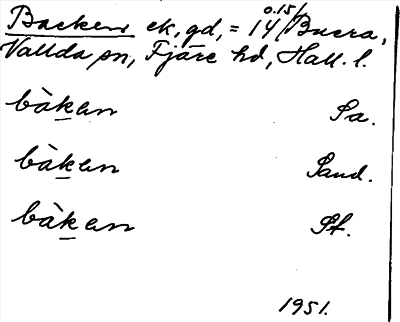 Backen ek, gd, = 14 0.15/Buera,
Vallda sn, Fjäre hd, Hall. l.
bàkan Sa.
bàkan Sand.
bàkan St.
1951.